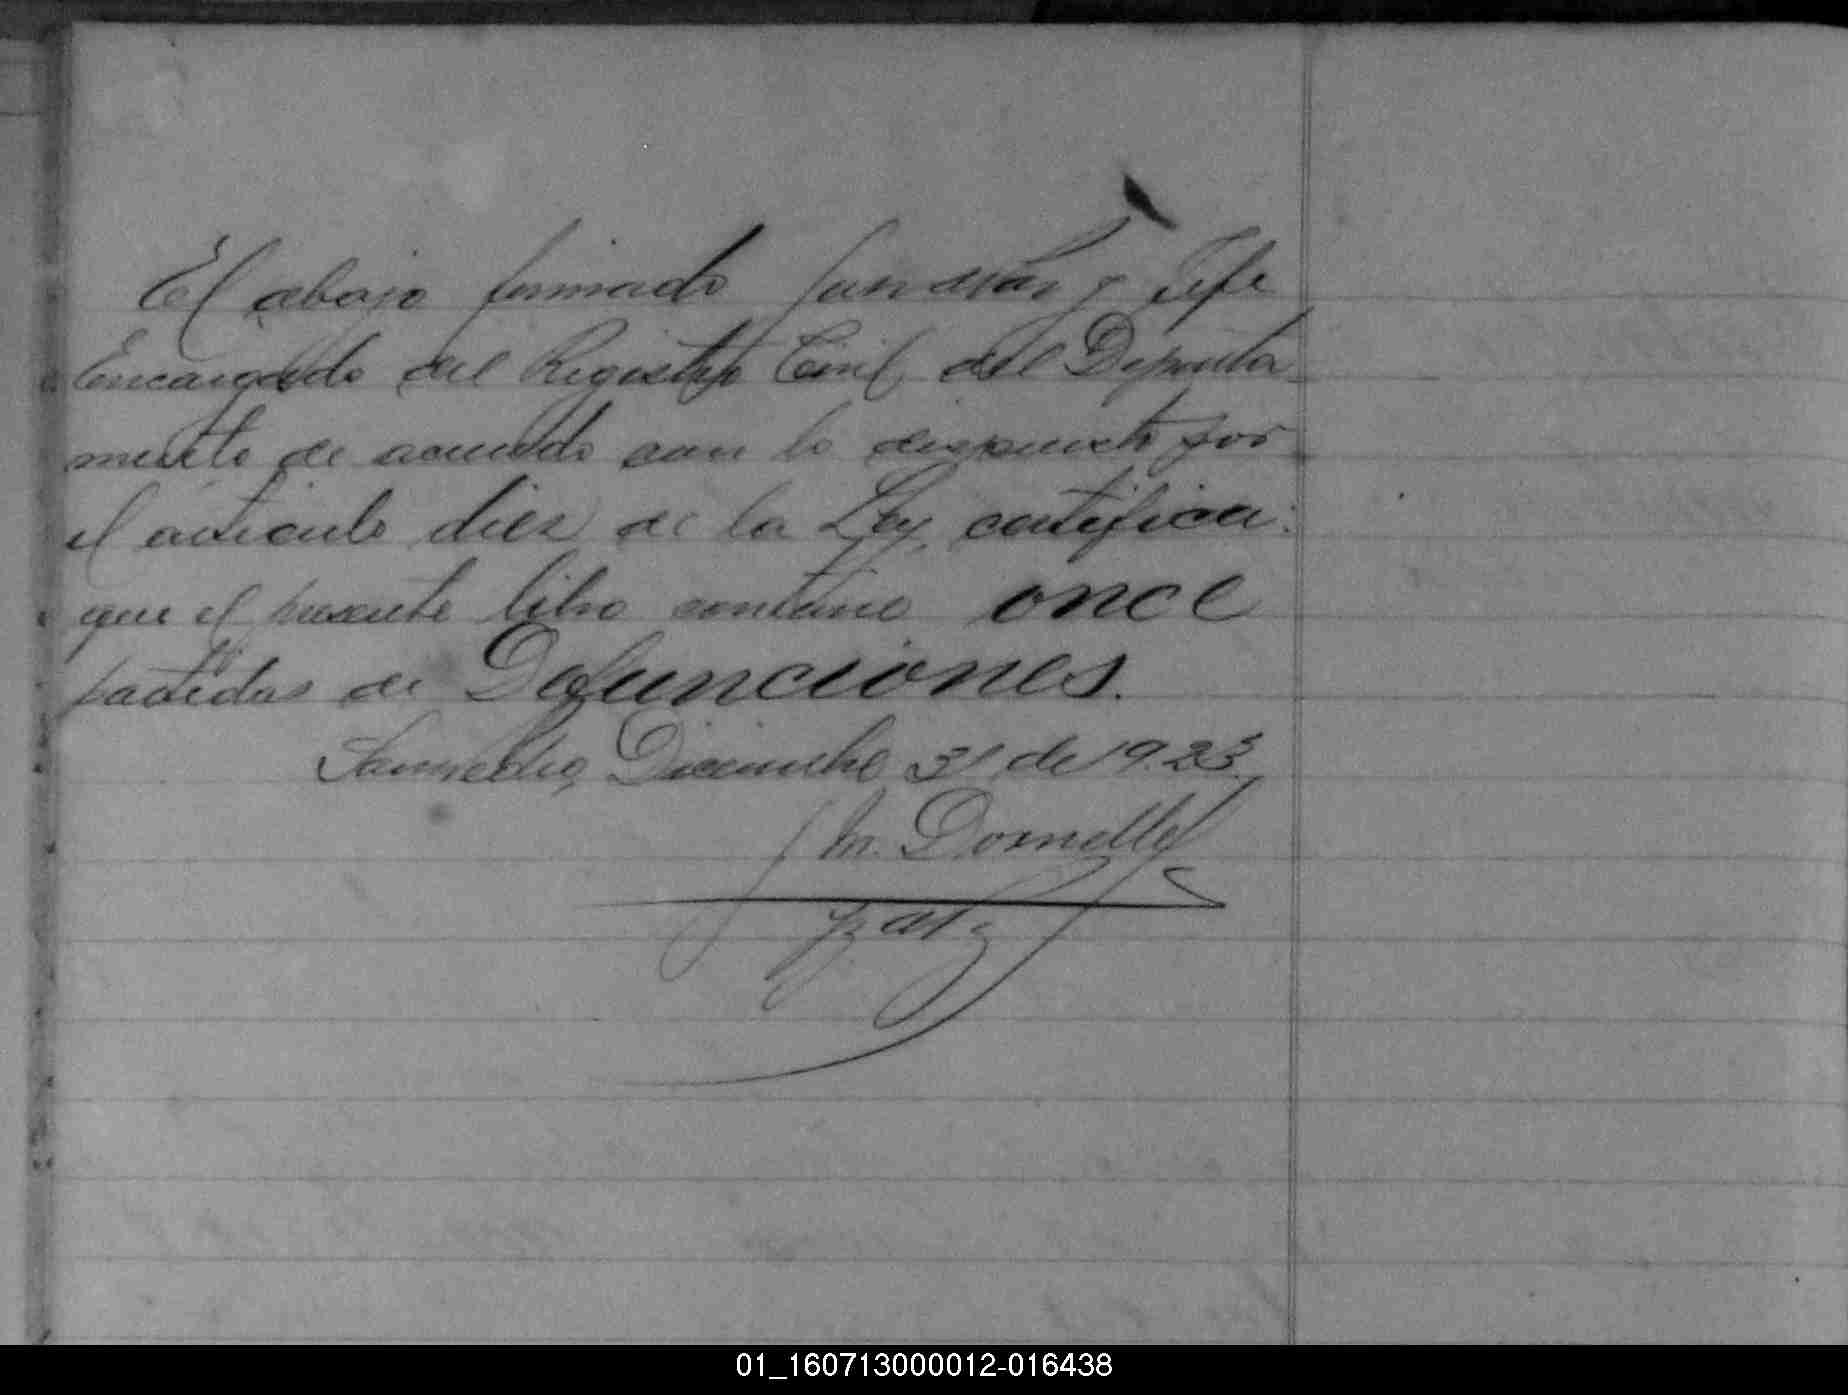 El abajo firmado Jues de Paz y Jefe
Encargado del Registro Civil del Departa
mento de acuerdo con lo dispuesto por
el articulo diez de la Ley, certifica:
que el presente libro contiene once
partidas de Defunciones.
San Pedro, Diciembre 31 de 1923
M.
01_160713000012-016438